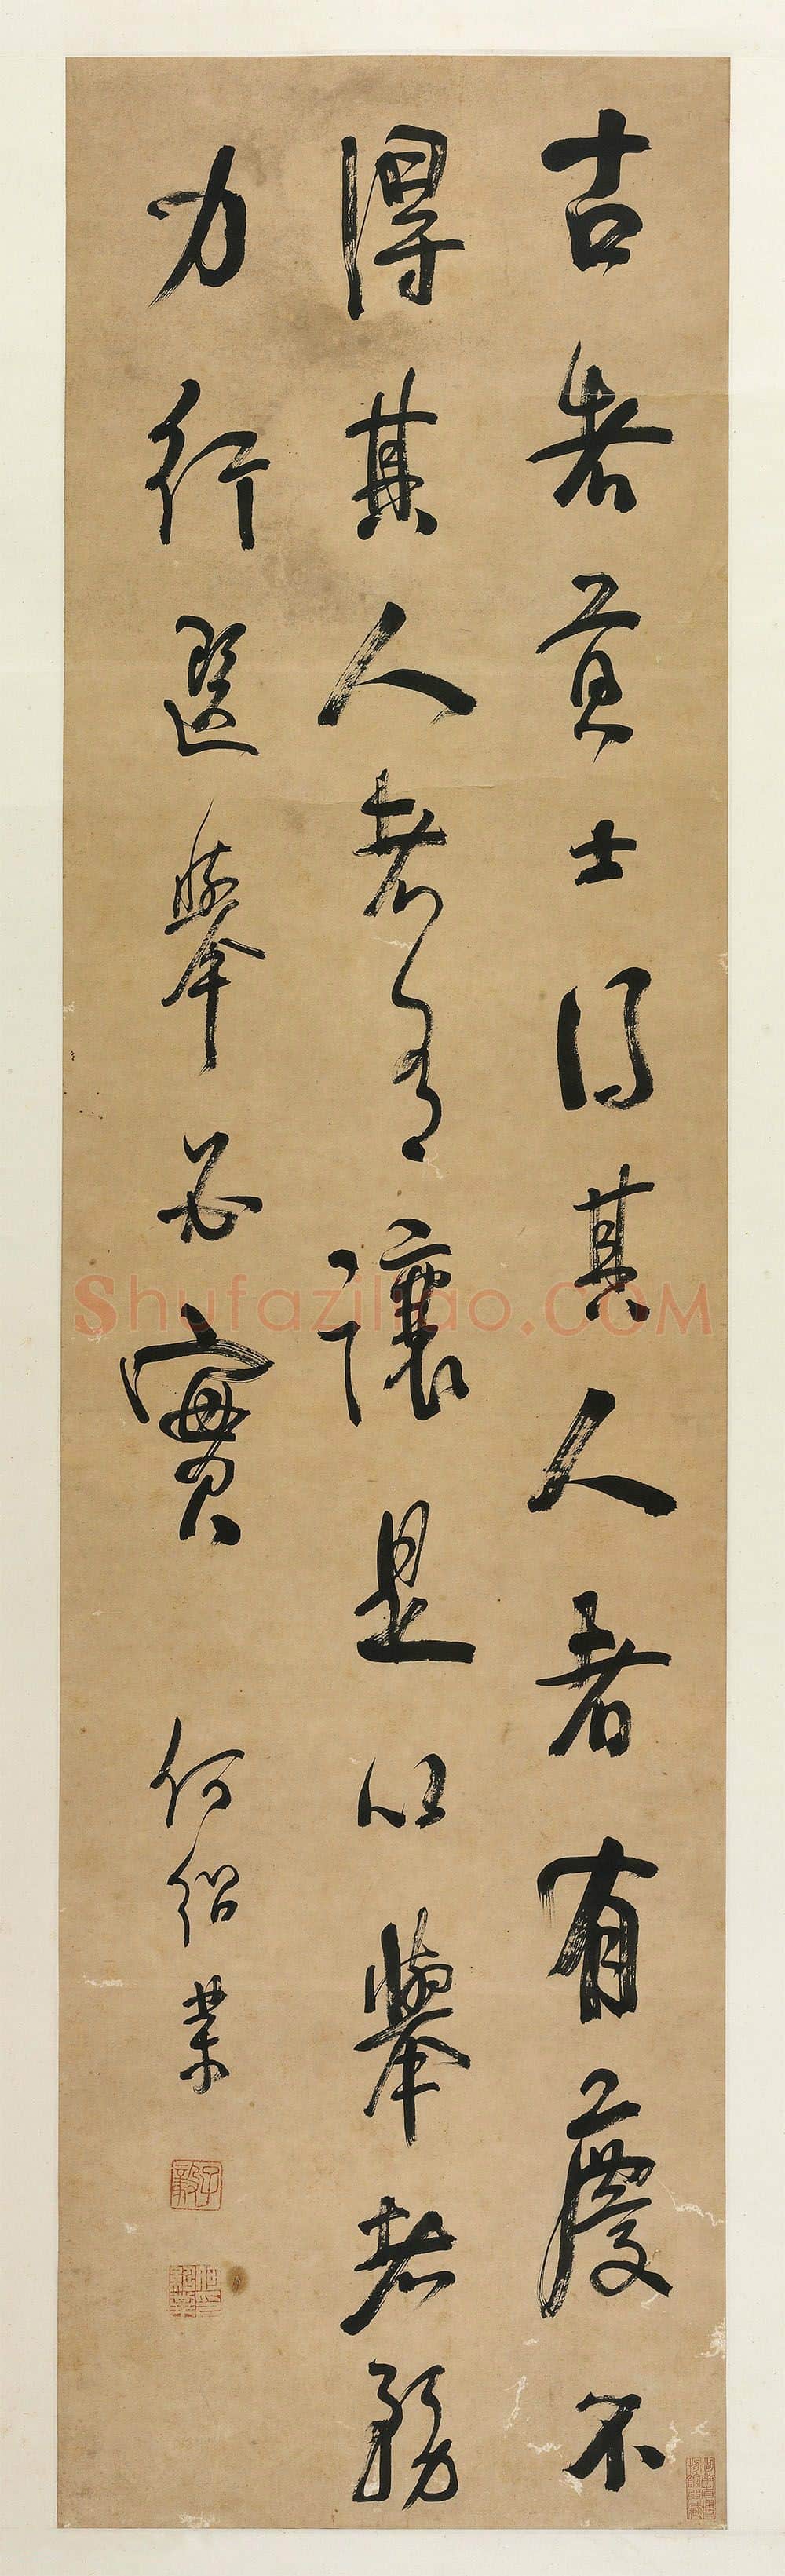 古者貢士得其人者有慶不
得其人者有讓是以舉者務
力行選舉必實
何紹業
子毅
何紹業印
Shufaziliao.COM